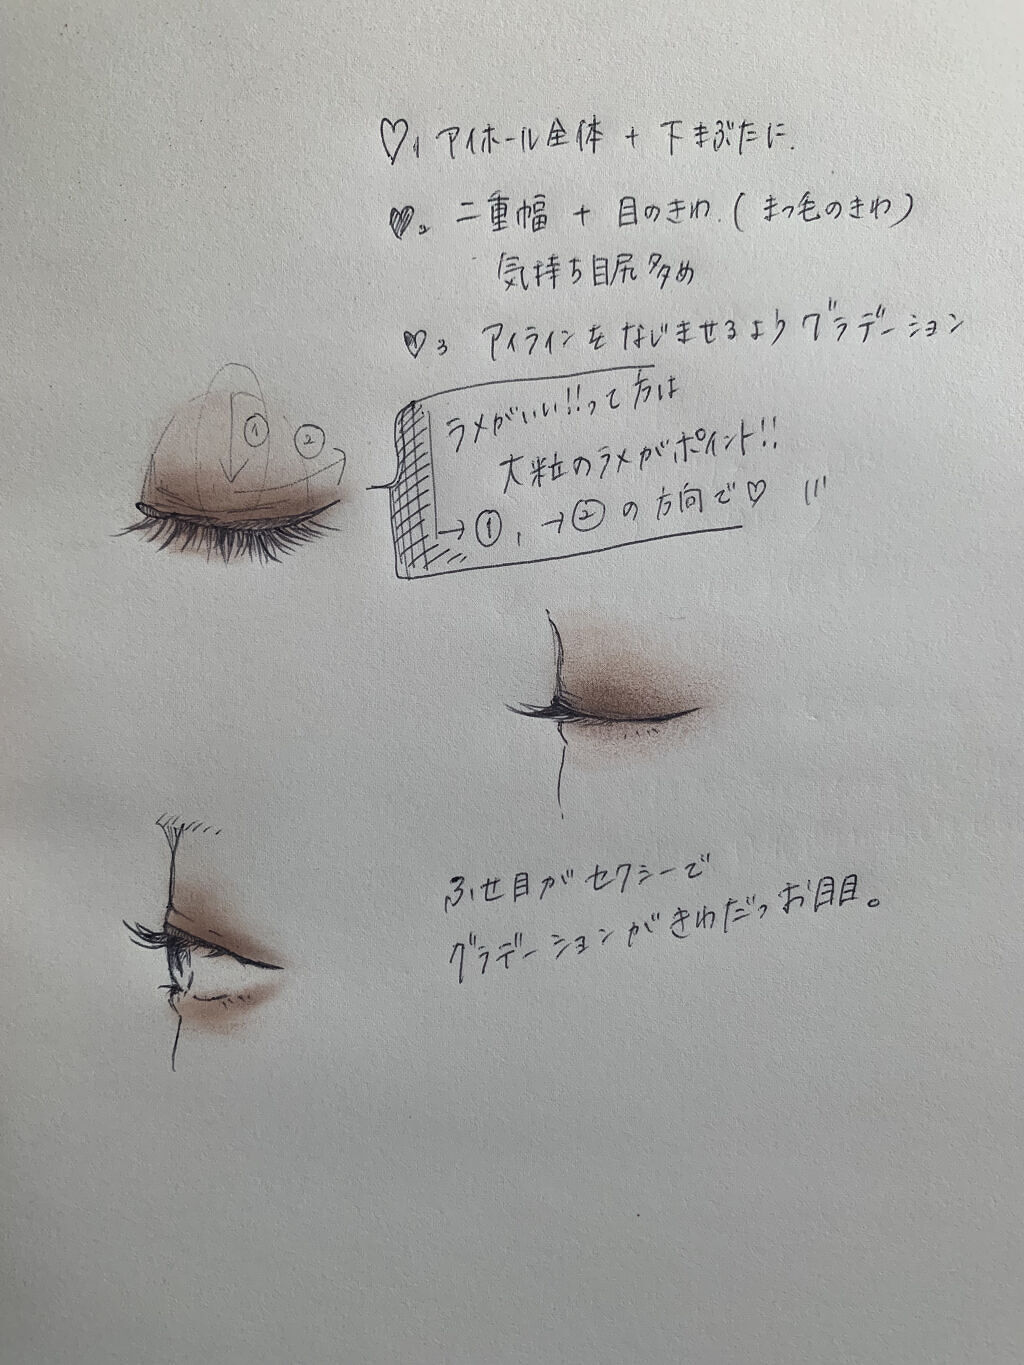 ♡1 アイホール全体 + 下まぶたに.
♥2. 二重幅 + 目のきわ.(まつ毛のきわ)
気持ち目尻多め
♥3 アイラインをなじませるようグラデーション
ラメがいい!!って方は
大粒のラメがポイント!!
→①, →②の方向で♡
① ②
ふせ目がセクシーで
グラデーションがきわだつお目目。